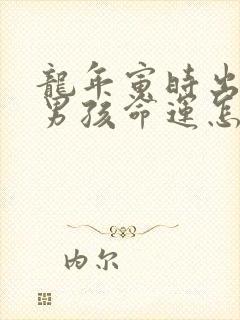 龍年寅時出
男孩命運怎
内尔